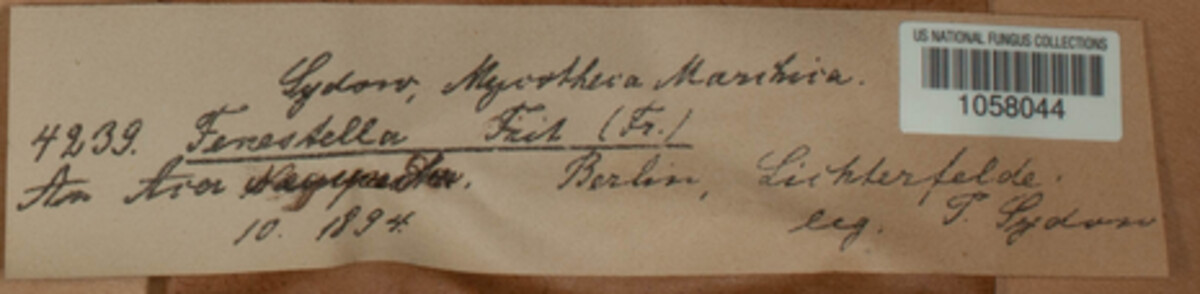 US NATIONAL FUNGUS COLLECTIONS
1058044
Sydow, Mycotheca Marchica.
4239. Fenestella (Fr.)
An Acer. Berlin, Lichterfelde.
10. 1894. leg. P. Sydow